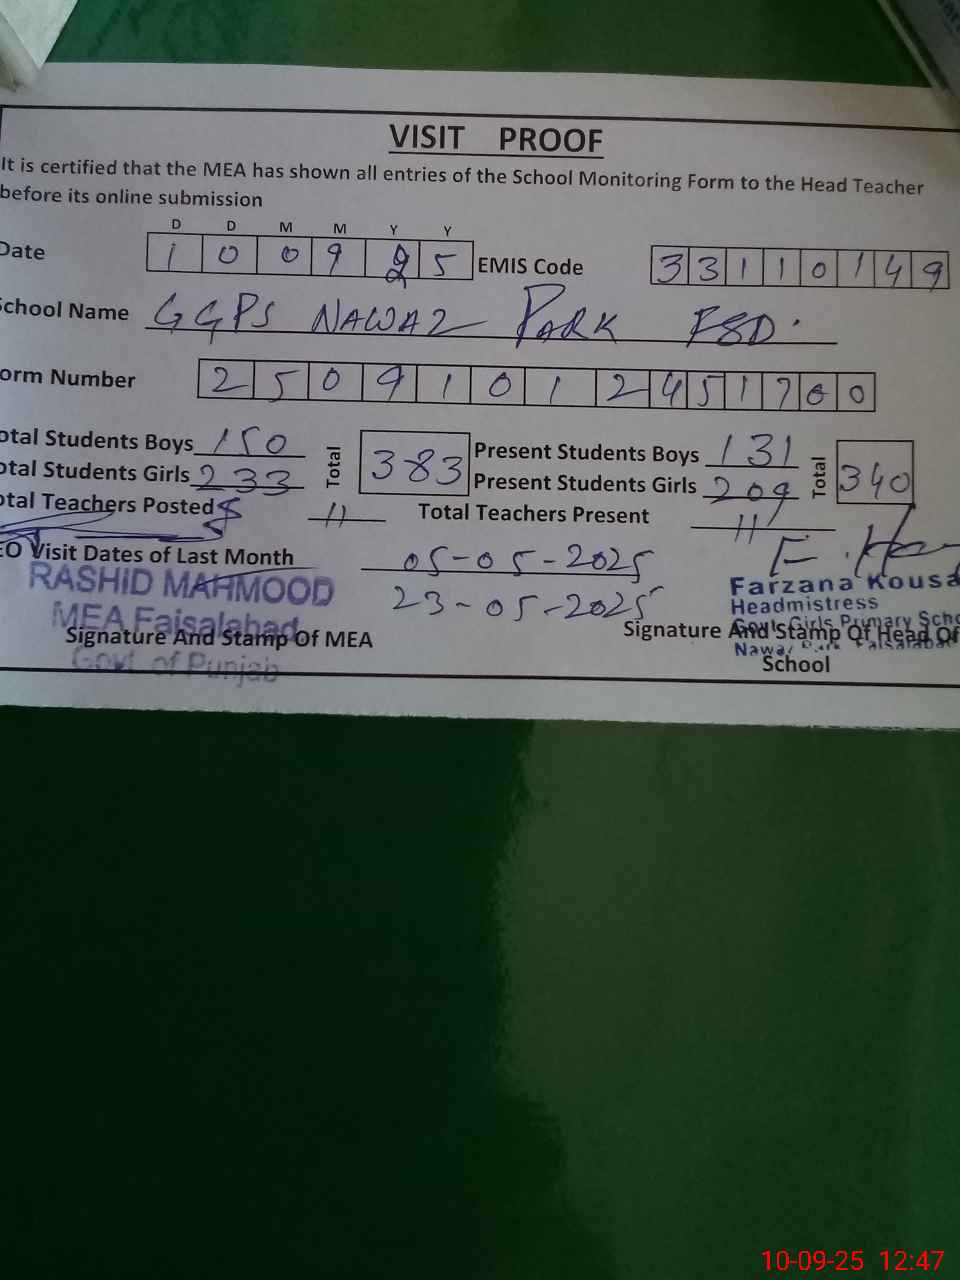 VISIT PROOF
It is certified that the MEA has shown all entries of the School Monitoring Form to the Head Teacher
before its online submission
D D M M Y Y
Date 1 0 0 9 2 5 EMIS Code 3 3 1 1 0 1 4 9
School Name GGPS NAWAZ PARK FSD.
orm Number 2 5 0 9 1 0 1 2 4 5 1 7 0 0
otal Students Boys 150 Total 383 Present Students Boys 131 Total 340
otal Students Girls 233 Present Students Girls 209
otal Teachers Posted 11 Total Teachers Present 11
EO Visit Dates of Last Month 05-05-2025
23-05-2025
RASHID MAHMOOD
MEA Faisalabad
Govt of Punjab
Signature And Stamp Of MEA
Farzana Kousa
Headmistress
Govt. Girls Primary Scho
Nawaz Park Faisalabad
Signature And Stamp Of Head Of
School
10-09-25 12:47